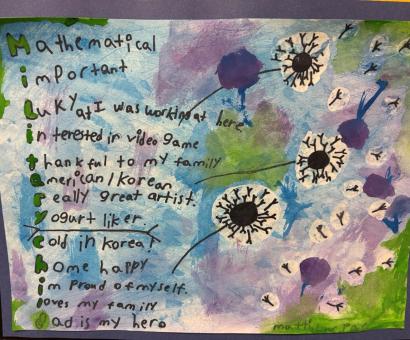 Mathematical
important
Lukyat I was working at here
interested in video game
thankful to my family
american/korean
really great artist.
yogurt liker
Cold in korea!
home happy
im proud of myself.
loves my family
Dad is my hero